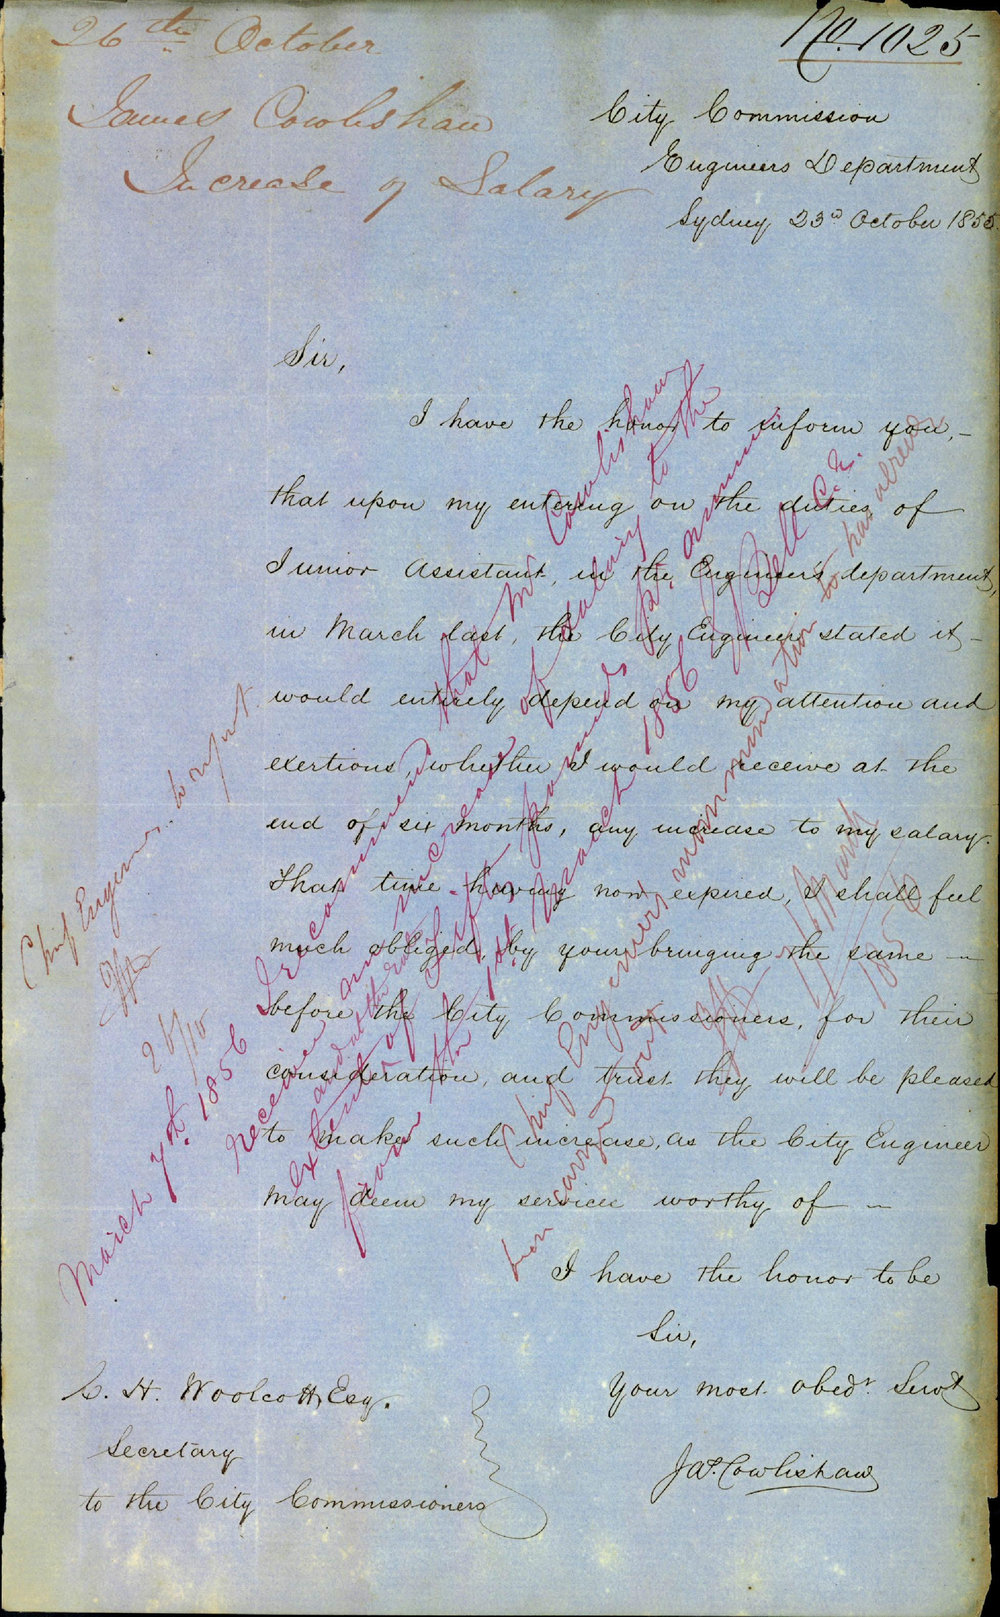 26th October
James Cowlishaw
Increase of Salary
No. 1025
City Commission
Engineers Department
Sydney 23rd October 1855.
Sir,
I have the honor to inform you, –
that upon my entering on the duties of
Junior Assistant, in the Engineer's department,
in March last, the City Engineer stated it –
would entirely depend on my attention and
exertions, whether I would receive at the
end of six months, any increase to my salary.
That time having now expired, I shall feel
much obliged, by your bringing the same –
before the City Commissioners, for their
consideration, and trust they will be pleased
to make such increase, as the City Engineer
may deem my services worthy of –
I have the honor to be
Sir,
Your most obedt. Servt
Jas. Cowlishaw
C. H. Woolcott, Esq.
Secretary
to the City Commissioners
Chief Engineer to report
26/10
March 7th 1856 I recommend that Mr Cowlishaw
receive an increase of salary to the
extent of Fifty pounds pr. annum
and at the rate
from the 1st March 1856 Bell C.E.
Chief Engineers recommendation to has already
been carried out
March
1856